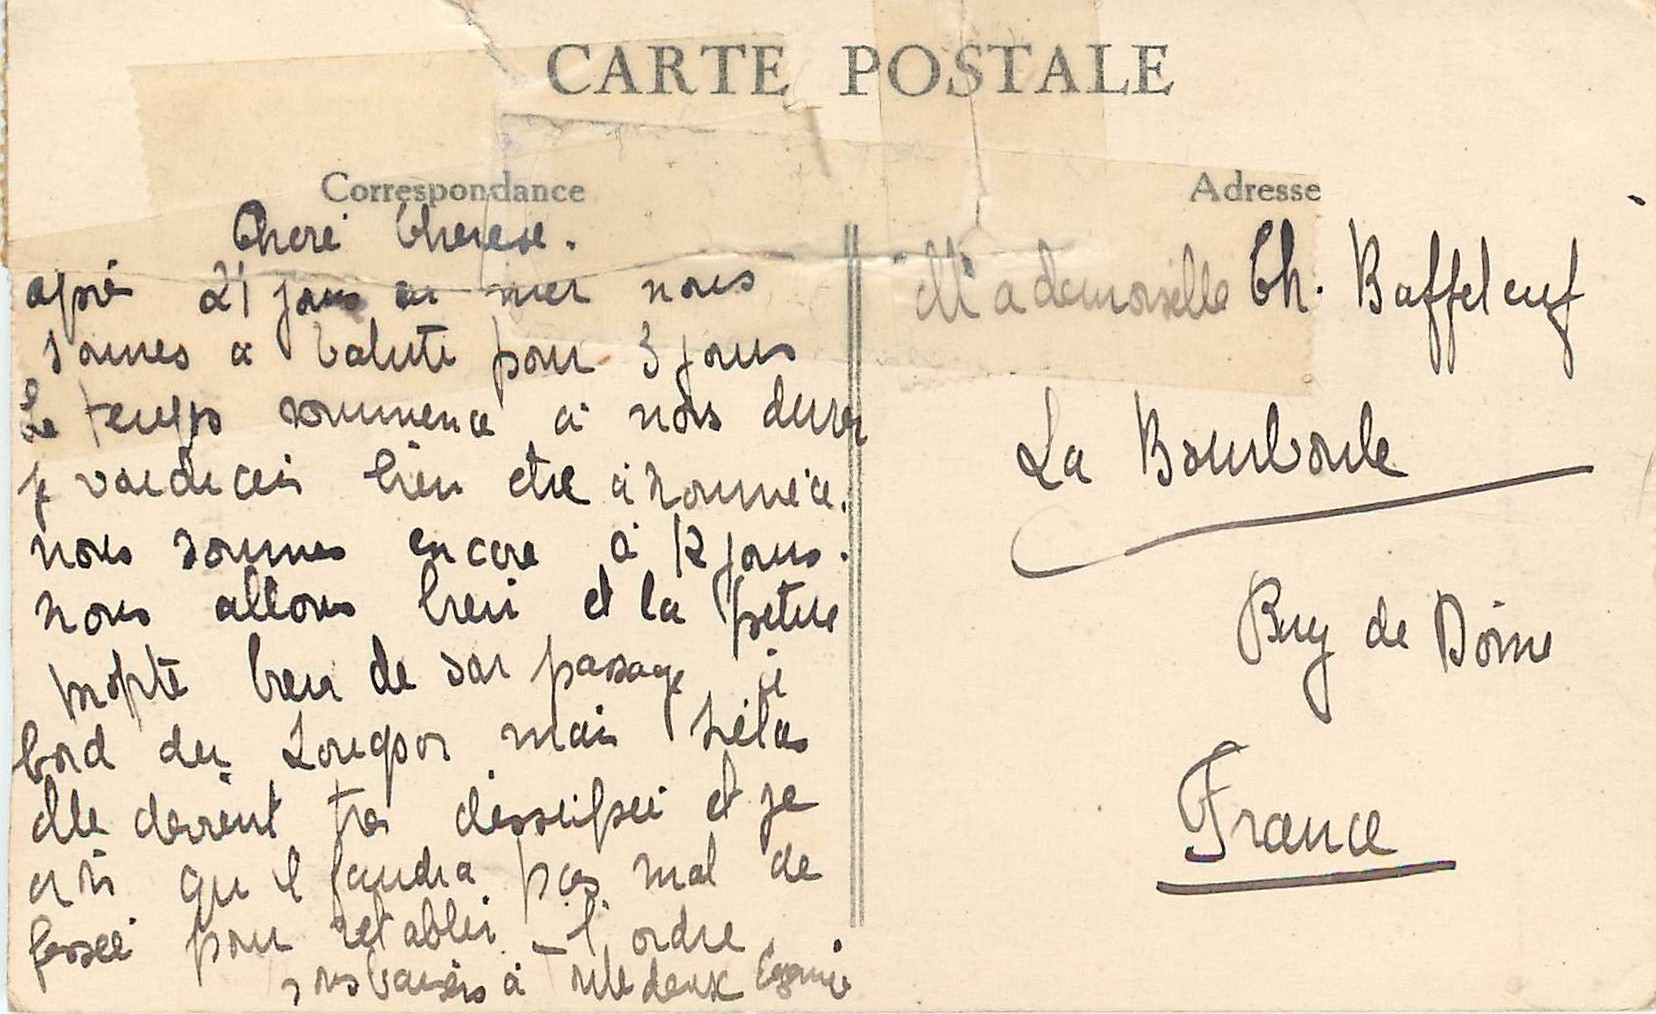 CARTE POSTALE
Correspondance
Chere Therese.
apré 21 jours en mer nous
sommes a pour 3 jours
Le temps commence a nous durer
je bien etre a
nous sommes encore à 12 jours.
nous allons bien et la petite
profite bien de son passage à
bord du mais hélas
elle devient tres dissipée et je
crois qu il faudra pas mal de
fessée pour retablir l ordre
bons baisers à toute deux Eugenie
Adresse
Mademoiselle Th. Baffeleuf
La Bourboule
Puy de Dôme
France